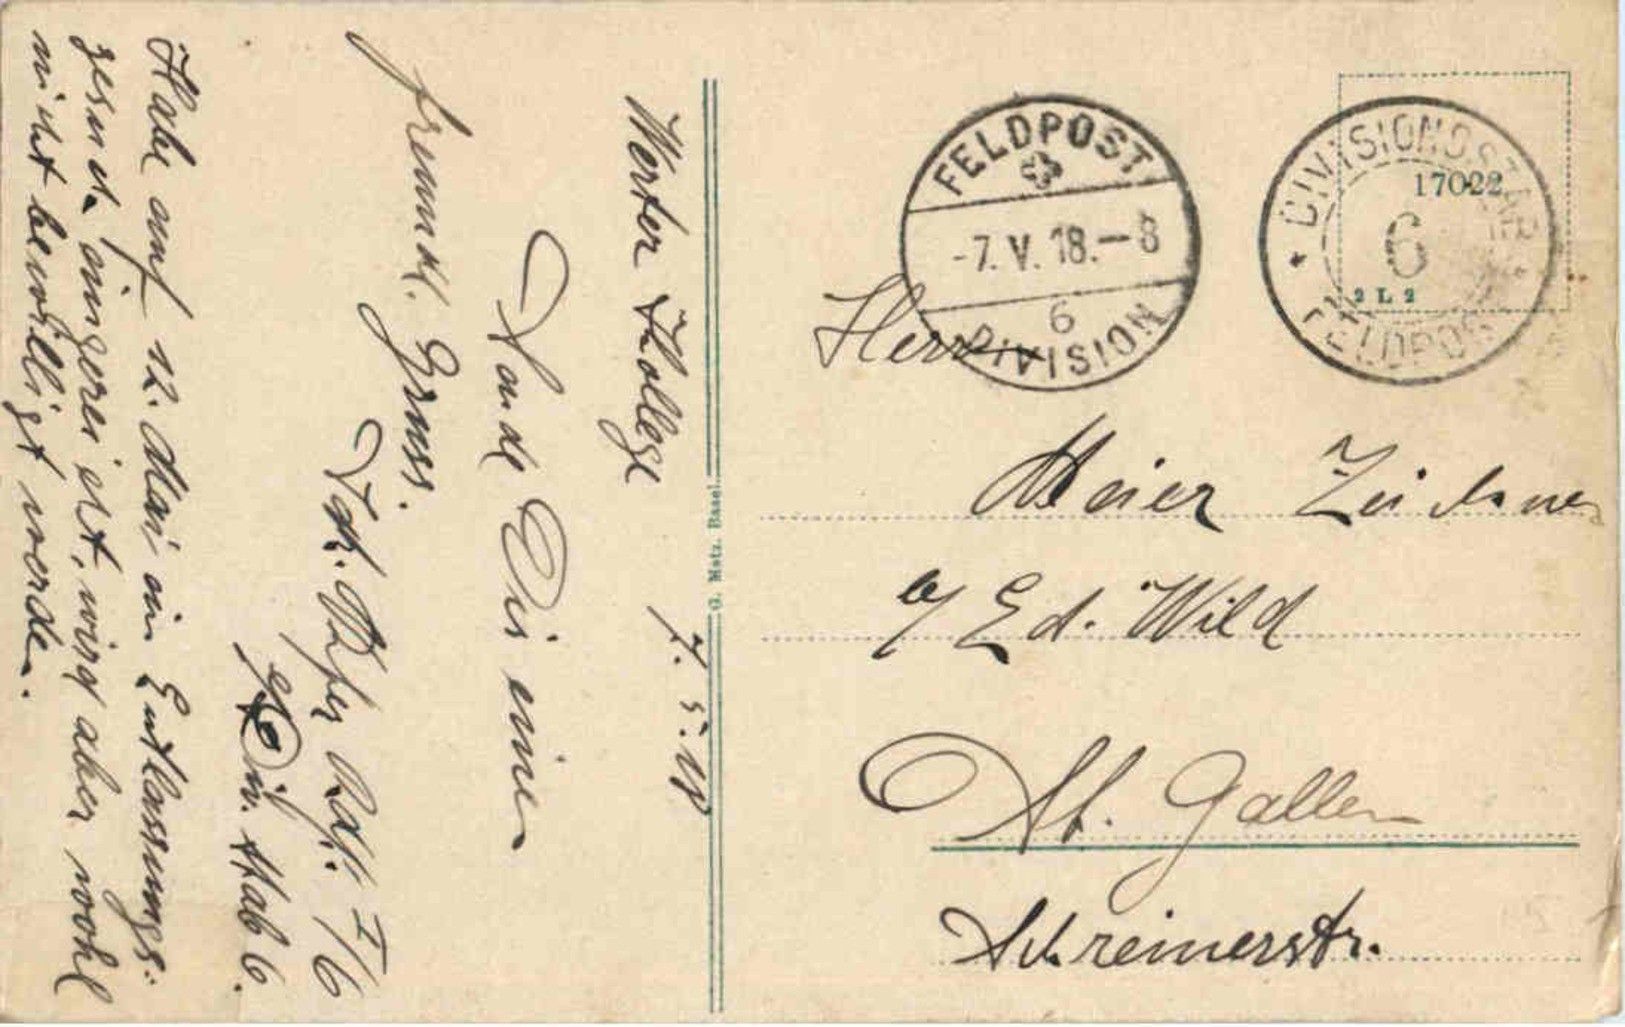 Werter Kollege
7.5.18
Sende Dir eine
freundl. Gruss.
Rdf. I/6
Div. Stab 6.
Habe auf 12. Mai ein Entlassungs-
gesuch eingereicht, wird aber wohl
nicht bewilligt werden.
G. Metz, Basel.
FELDPOST
-7. V. 18.-8
6
DIVISION
DIVISIONSSTAB
6
FELDPOST
17022
2 L 2
Herrn
Meier Zeichner
b/ Ed. Wild
St. Gallen
Schreinerstr.